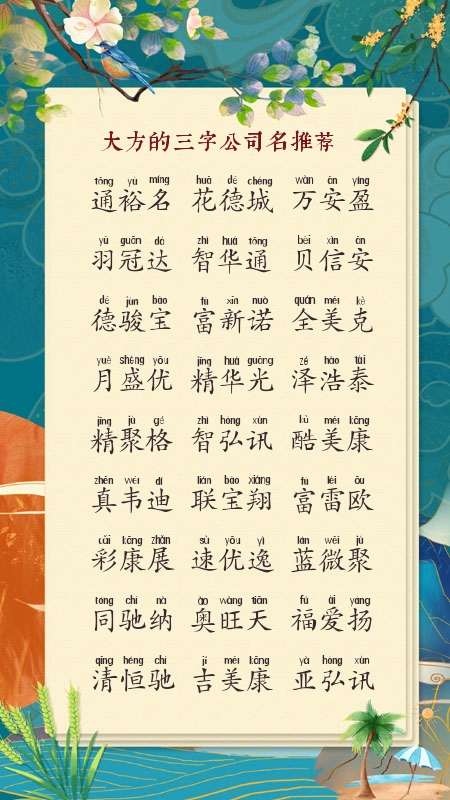 大方的三字公司名推荐
tōng yù míng huā dé chéng wàn ān yíng
通裕名 花德城 万安盈
yǔ guān dá zhì huá tōng bèi xìn ān
羽冠达 智华通 贝信安
dé jùn bǎo fù xīn nuò quán měi kè
德骏宝 富新诺 全美克
yuè shèng yōu jīng huá guāng zé hào tài
月盛优 精华光 泽浩泰
jīng jù gé zhì hóng xùn kù měi kāng
精聚格 智弘讯 酷美康
zhēn wéi dí lián bǎo xiáng fù léi ōu
真韦迪 联宝翔 富雷欧
cǎi kāng zhǎn sù yōu yì lán wēi jù
彩康展 速优逸 蓝微聚
tóng chí nà ào wàng tiān fú ài yáng
同驰纳 奥旺天 福爱扬
qīng héng chí jí měi kāng yà hóng xùn
清恒驰 吉美康 亚弘讯